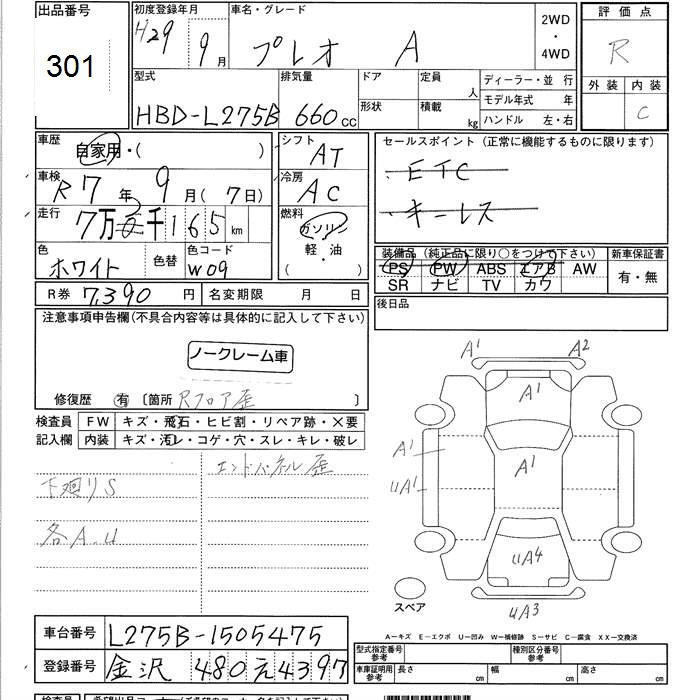 出品番号 初度登録年月 車名・グレード 2WD・4WD 評価点
301 H29年9月 プレオ A R
型式 排気量 ドア 定員 人 ディーラー・並 行 外装 内装
HBD-L275B 660cc 形状 積載 kg モデル年式 年 C
ハンドル 左・右
車歴 自家用・( ) シフト AT セールスポイント(正常に機能するものに限ります)
車検 R7年9月(7日) 冷房 AC ・ETC
走行 7万2千165km 燃料 ガソリン ・キーレス
軽・油
( )
色 ホワイト 色替 色コード W09 装備品(純正品に限り○をつけて下さい) 新車保証書
PS PW ABS エアB AW 有・無
SR ナビ TV カワ
R券 7,390円 名変期限 月 日 後日品
注意事項申告欄(不具合内容等は具体的に記入して下さい)
ノークレーム車
修復歴 有 〔箇所 Rフロア歪 〕
検査員 FW キズ・飛石・ヒビ割・リペア跡・×要
記入欄 内装 キズ・汚レ・コゲ・穴・スレ・キレ・破レ
エンドパネル歪
下廻りS
各A.U
A1 A2
A1
A1 A1
UA1
UA4
スペア UA3
A-キズ E-エクボ U-凹み W-補修跡 S-サビ C-腐食 XX-交換済
車台番号 L275B-1505475
登録番号 金沢 480 え 4397
型式指定番号 参考 種別区分番号 参考
車庫証明用 参考 長さ cm 幅 cm 高さ cm